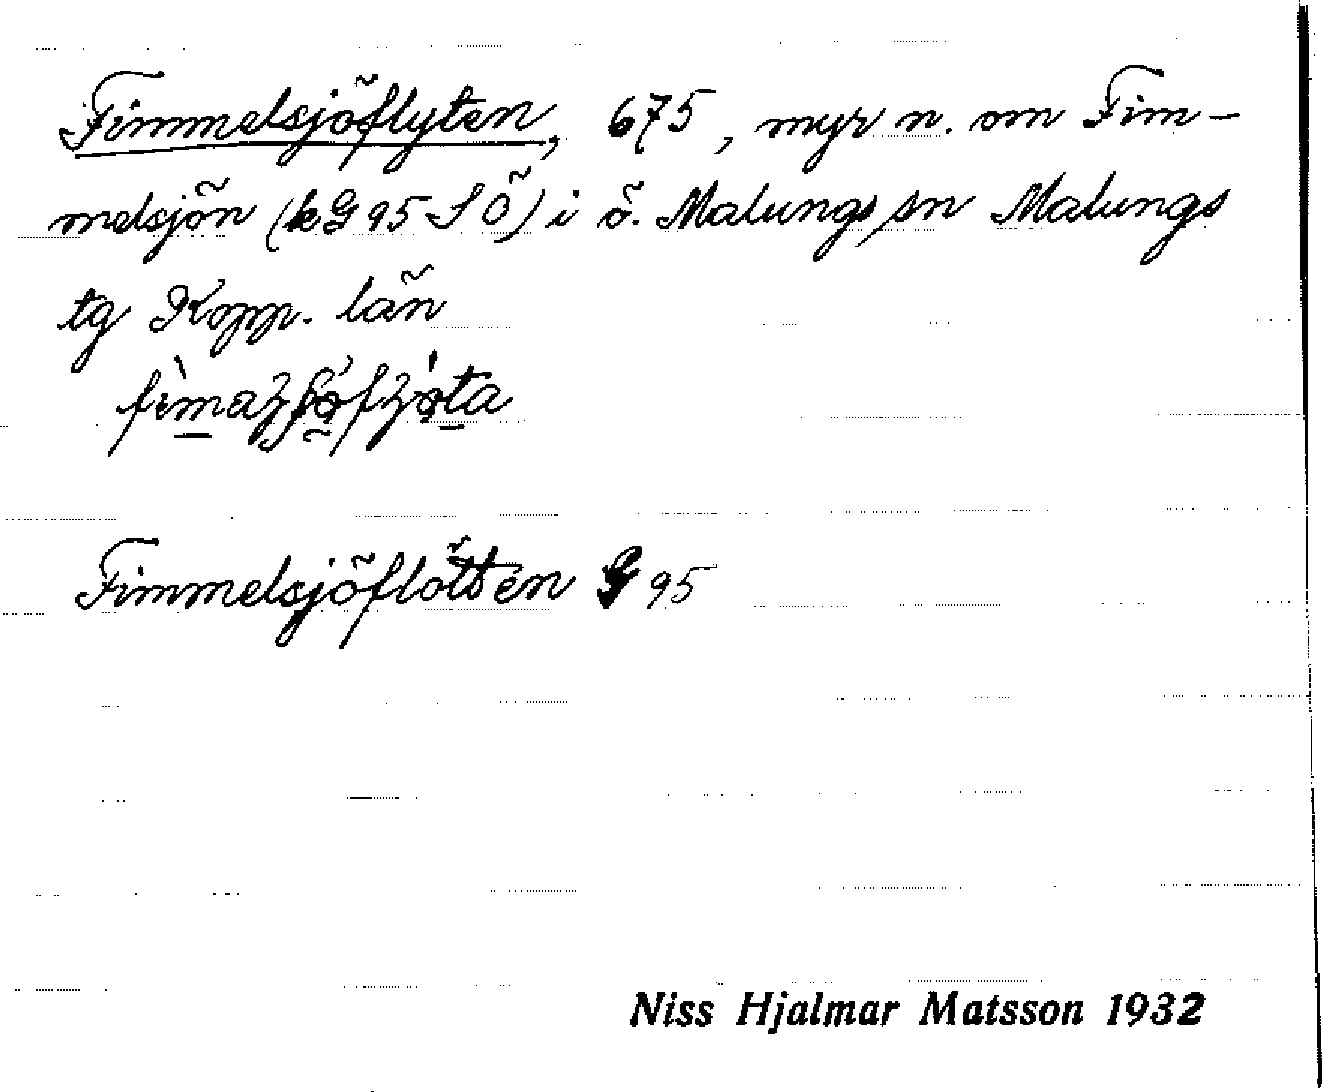 Fimmelsjöflyten, 675, myr n. om Fim-
melsjön (kG 95 SÖ) i ö. Malungs sn Malungs
tg Kopp. län
Fimmelsjöflötten G 95
Niss Hjalmar Matsson 1932